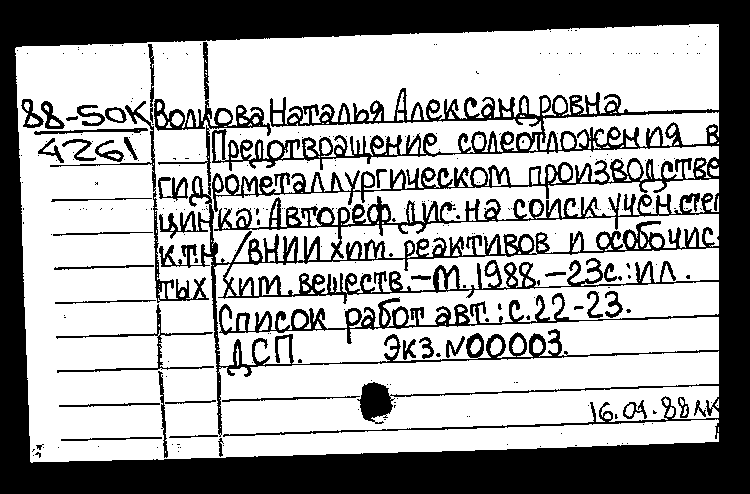 88-50К Волкова, Наталья Александровна.
4261 Предотвращение солеотложения в
гидрометаллургическом производстве
цинка: Автореф. дис. на соиск. учён. степ
к.т.н. /ВНИИ хим. реактивов и особо чис-
тых хим. веществ. – М., 1988. – 23с.: ил.
Список работ авт.: с.22-23.
ДСП. Экз. N00003.